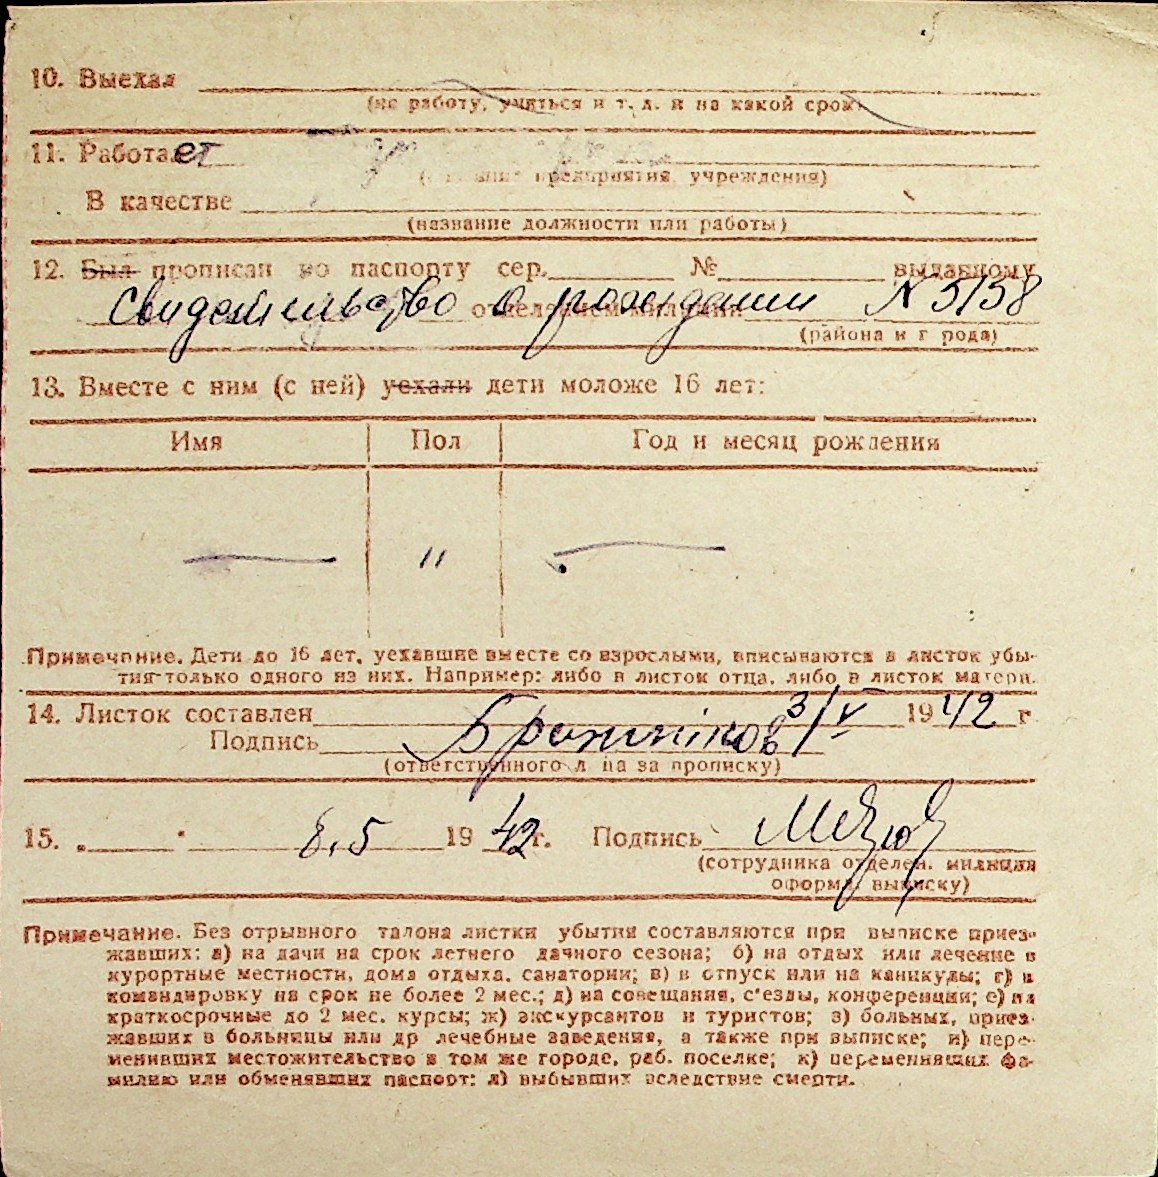 10. Выехал
(на работу, учиться и т. д. и на какой срок)
11. Работает
предприятия, учреждения)
В качестве
(название должности или работы)
12. Был прописан по паспорту сер. № выданному
отделением милиции
Свидетельство о рождении № 5158
(района и города)
13. Вместе с ним (с ней) уехали дети моложе 16 лет:
Имя Пол Год и месяц рождения
— " —
Примечание. Дети до 16 лет, уехавшие вместе со взрослыми, вписываются в листок убы-
тия только одного из них. Например: либо в листок отца, либо в листок матери.
14. Листок составлен 3/V 1942 г
Подпись
(ответственного лица за прописку)
15. „ " 8.5 1942 г. Подпись
(сотрудника отделен. милиции
оформ. выписку)
Примечание. Без отрывного талона листки убытия составляются при выписке приез-
жавших: а) на дачи на срок летнего дачного сезона; б) на отдых или лечение в
курортные местности, дома отдыха, санатории; в) в отпуск или на каникулы; г) в
командировку на срок не более 2 мес.; д) на совещания, с'езды, конференции; е) на
краткосрочные до 2 мес. курсы; ж) экскурсантов и туристов; з) больных, приез-
жавших в больницы или др лечебные заведения, а также при выписке; и) пере-
менивших местожительство в том же городе, раб. поселке; к) переменивших фа-
милию или обменявших паспорт; л) выбывших вследствие смерти.